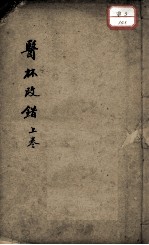 醫林改錯上卷